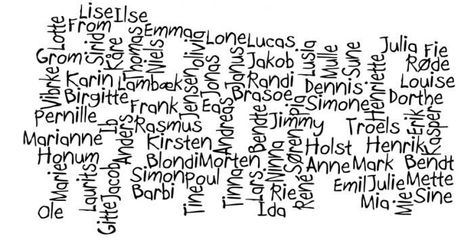 Lise
Ilse
Lotte
From
Sirid
Kåre
Thomas
Emma
Niels
Olivia
Lone
Lucas.
Lusia
Mulle
Sune
Julia
Fie
Røde
Grom
Vibrke
Karin
Lambæk
Jonas
Djanus
Jakob
Randi
Dennis
Henriette
Louise
Birgitte
Frank
Jensen
Ea
Brasoe
Simone
Dorthe
Pernille
Ib
Anders
Rasmus
Andreas
Bendte
Jimmy
Troels
Erik
Kasper
Marianne
Kirsten
Holst
Henrik
Honum
Marie
Laurits
Jacob
Gitte
Blondi
Morten
Ninna
Søren
Anne
Mark
Bendt
Simon
Poul
Tine
Tinna
Lars
Rie
René
Emil
Julie
Mette
Barbi
Ida
Mia
Mie
Sine
Ole